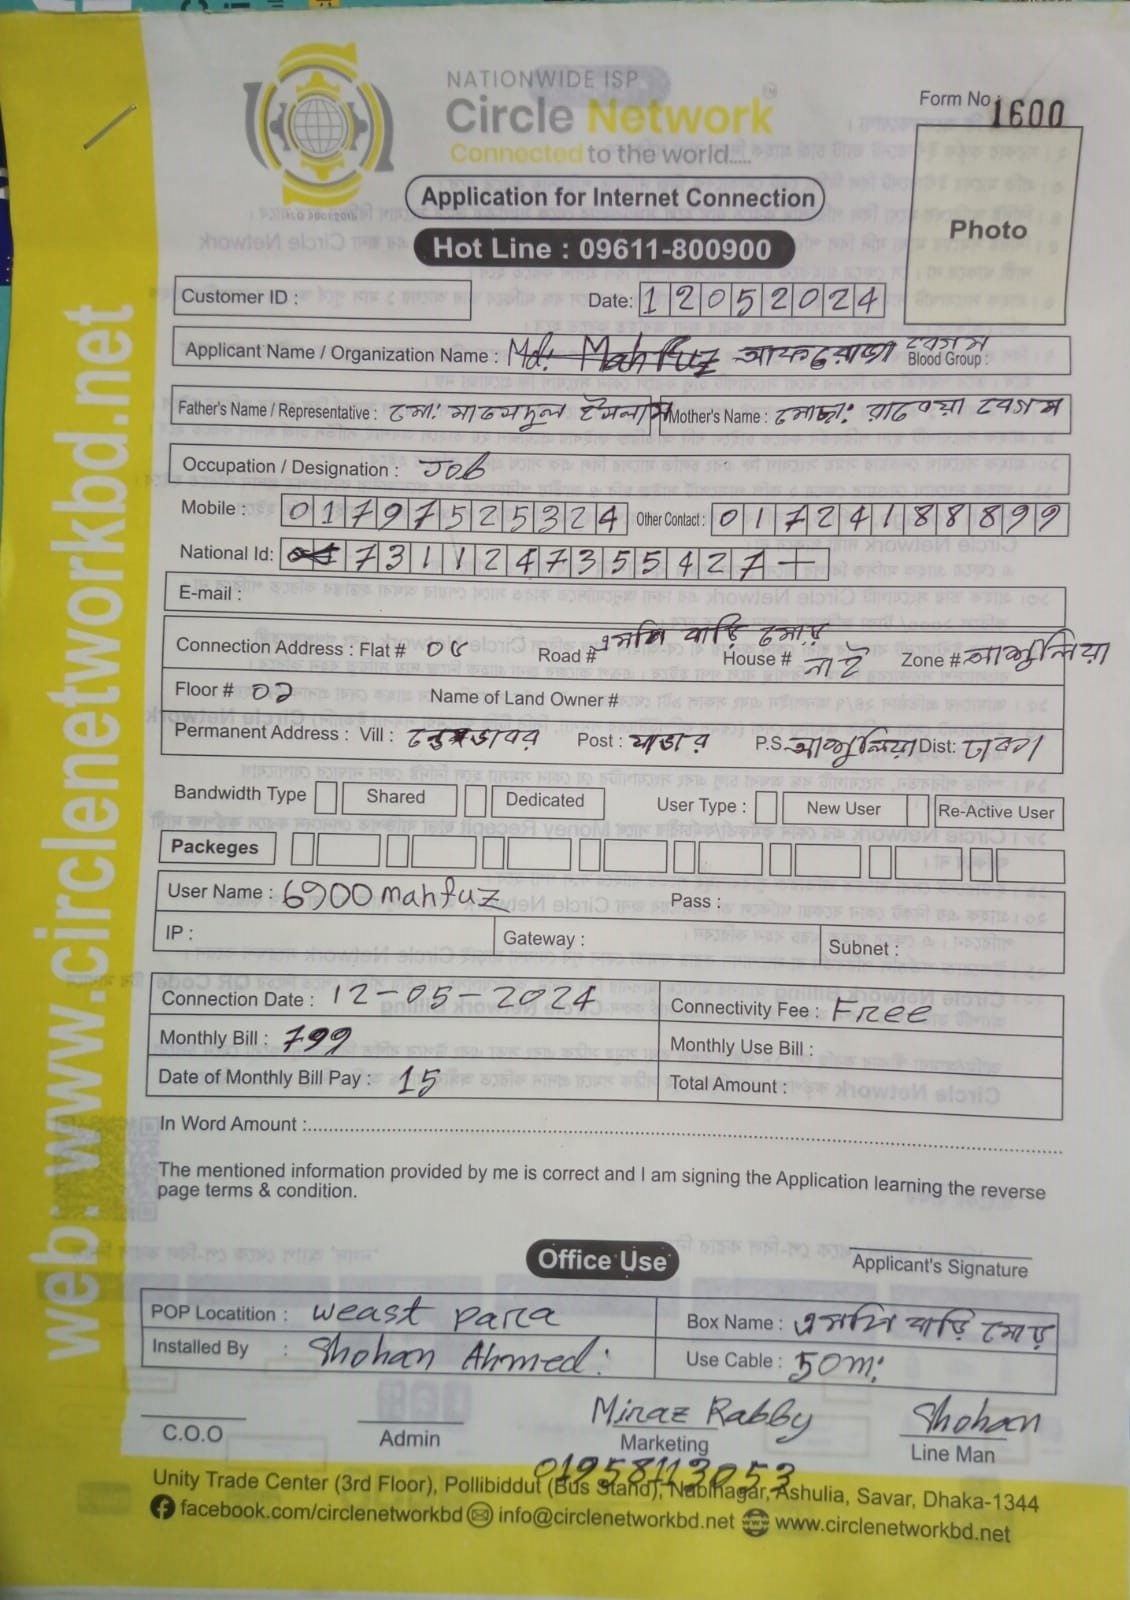 NATIONWIDE ISP
Circle Network
Connected to the world.....
Form No : 1600
Photo
Application for Internet Connection
Hot Line : 09611-800900
Customer ID :
Date: 12052024
Applicant Name / Organization Name : Md: Mahfuz আফরোজা বেগম
Blood Group :
Father's Name / Representative : মো: মাসেদুল ইসলাম Mother's Name : মোছা: রাবেয়া বেগম
Occupation / Designation : Job
Mobile : 01797525324 Other Contact : 01724188899
National Id: 7311247355427
E-mail :
এমপি বাড়ি মোড়
Connection Address : Flat # 05 Road # House # নাই Zone # আশুলিয়া
Floor # 02 Name of Land Owner #
Permanent Address : Vill : Post : P.S. আশুলিয়া Dist: ঢাকা
Bandwidth Type Shared Dedicated User Type : New User Re-Active User
Packeges
User Name : 6900mahfuz Pass :
IP : Gateway : Subnet :
Connection Date : 12-05-2024 Connectivity Fee : Free
Monthly Bill : 799 Monthly Use Bill :
Date of Monthly Bill Pay : 15 Total Amount :
In Word Amount :
The mentioned information provided by me is correct and I am signing the Application learning the reverse
page terms & condition.
Office Use
Applicant's Signature
POP Locatition : weast para Box Name : এমপি বাড়ি মোড়
Installed By : Shohan Ahmed: Use Cable : 50m:
Miraz Rabby Shohan
C.O.O Admin Marketing Line Man
01958113053
Unity Trade Center (3rd Floor), Pollibiddut (Bus Stand), Nabinagar, Ashulia, Savar, Dhaka-1344
facebook.com/circlenetworkbd info@circlenetworkbd.net www.circlenetworkbd.net
web: www.circlenetworkbd.net